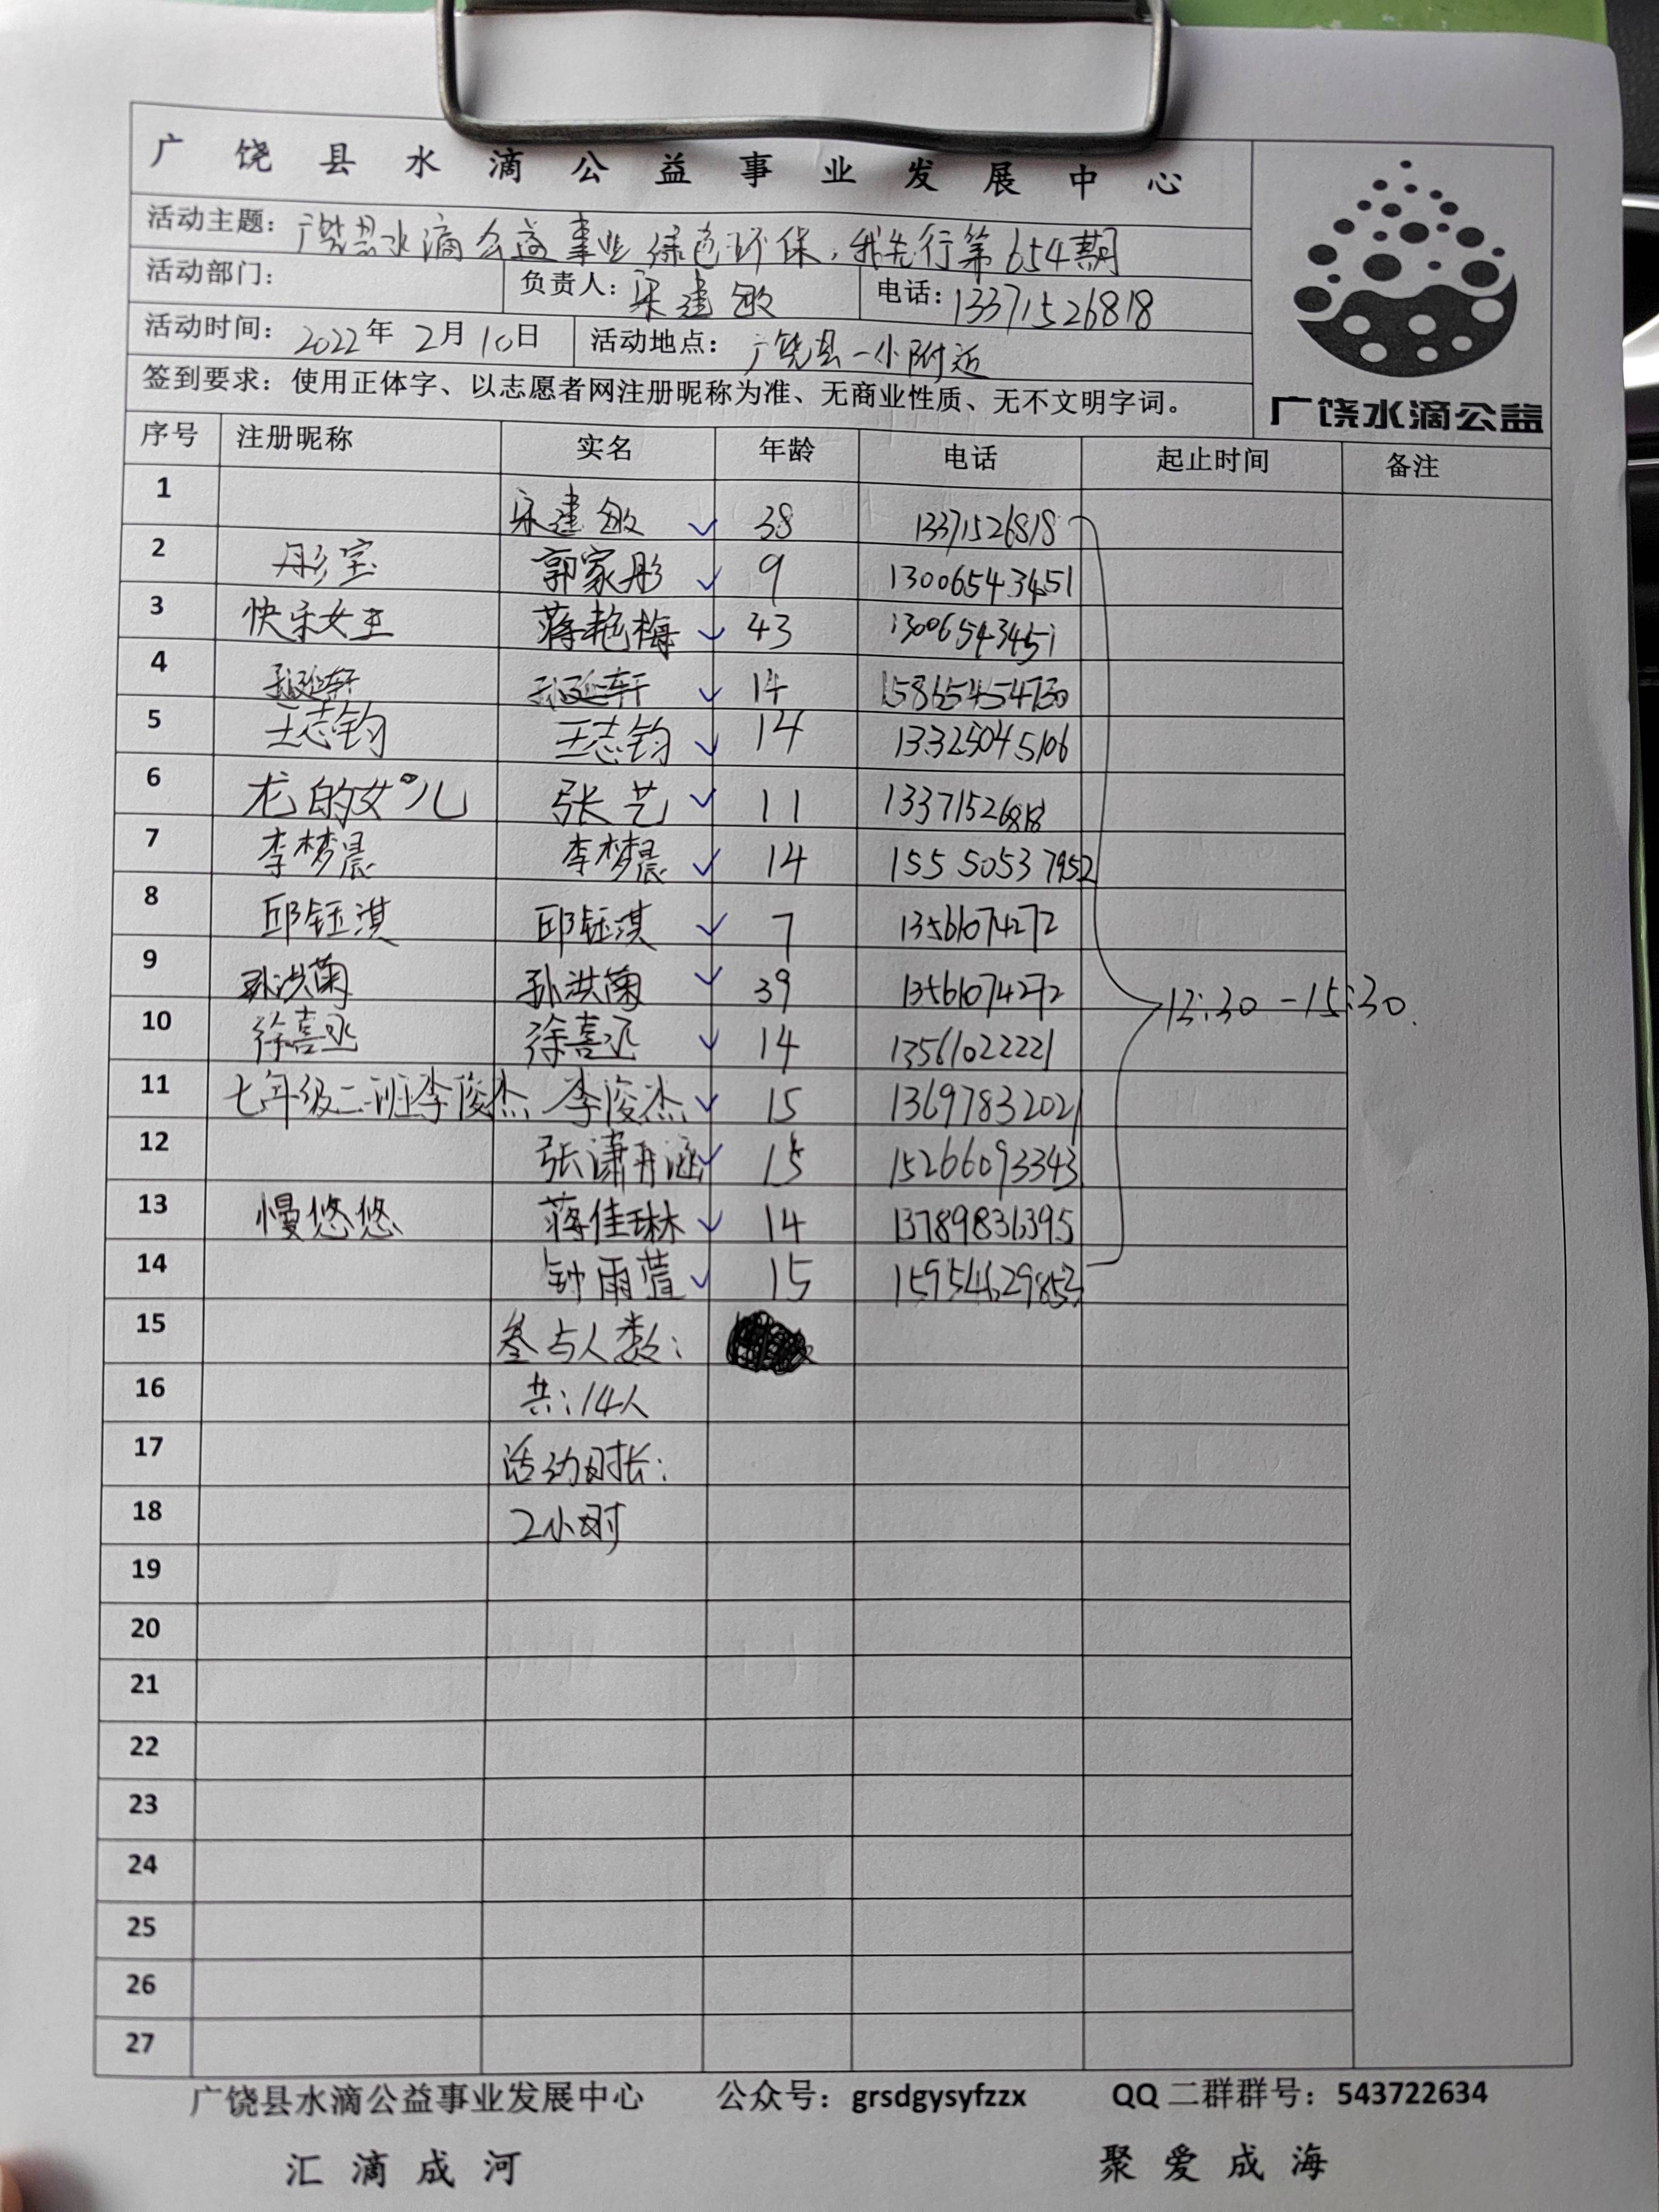 广饶县水滴公益事业发展中心
活动主题：广饶县水滴公益事业绿色环保，我先行第654期
活动部门： 负责人：宋建敏 电话：13371526818
活动时间：2022年2月10日 活动地点：广饶县一小附近
签到要求：使用正体字、以志愿者网注册昵称为准、无商业性质、无不文明字词。
广饶水滴公益
序号 注册昵称 实名 年龄 电话 起止时间 备注
1 宋建敏 ✓ 38 13371526818
2 彤宝 郭家彤 ✓ 9 13006543451
3 快乐女王 蒋艳梅 ✓ 43 13006543451
4 ✓ 14 15865454730
5 王志钧 王志钧 ✓ 14 13325045106
6 龙的女儿 张艺 ✓ 11 13371526818
7 李梦晨 李梦晨 ✓ 14 15550537952
8 邱钰淇 邱钰淇 ✓ 7 13561074272
9 孙洪菊 孙洪菊 ✓ 39 13561074272
12:30-15:30.
10 徐喜丞 徐喜丞 ✓ 14 13561022221
11 七年级二班李俊杰 李俊杰 ✓ 15 13697832021
12 张潇丹涵 ✓ 15 15266093343
13 慢悠悠 蒋佳琳 ✓ 14 13789831395
14 钟雨萱 ✓ 15 15954629853
15 参与人数：
16 共：14人
17 活动时长：
18 2小时
19
20
21
22
23
24
25
26
27
广饶县水滴公益事业发展中心 公众号：grsdgysyfzzx QQ二群群号：543722634
汇滴成河 聚爱成海